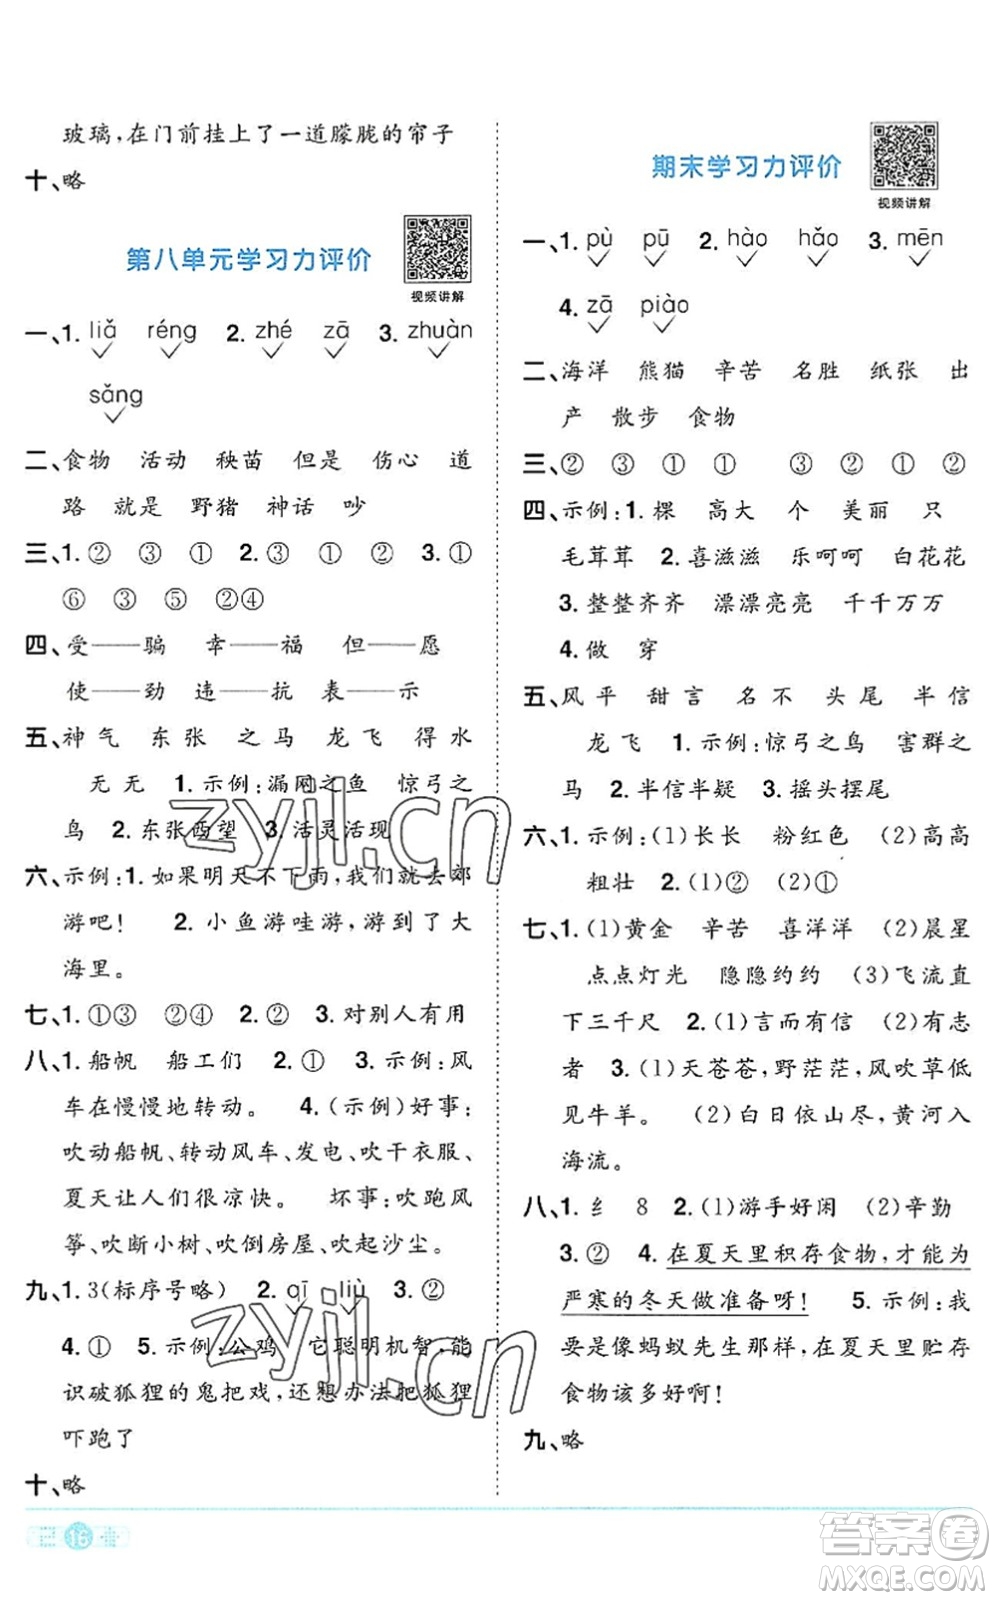 玻璃,在门前挂上了一道朦胧的帘子
十、略
第八单元学习力评价
视频讲解
一、1. liǎ réng 2. zhé zā 3. zhuàn
sǎng
二、食物 活动 秧苗 但是 伤心 道
路 就是 野猪 神话 吵
三、1. ② ③ ① 2. ③ ① ② 3. ①
⑥ ③ ⑤ ②④
四、受——骗 幸——福 但——愿
使——劲 违——抗 表——示
五、神气 东张 之马 龙飞 得水
无无 1. 示例:漏网之鱼 惊弓之
鸟 2. 东张西望 3. 活灵活现
六、示例:1. 如果明天不下雨,我们就去郊
游吧! 2. 小鱼游哇游,游到了大
海里。
七、1. ①③ ②④ 2. ② 3. 对别人有用
八、1. 船帆 船工们 2. ① 3. 示例:风
车在慢慢地转动。 4. (示例)好事:
吹动船帆、转动风车、发电、吹干衣服、
夏天让人们很凉快。 坏事:吹跑风
筝、吹断小树、吹倒房屋、吹起沙尘。
九、1. 3(标序号略) 2. qī liù 3. ②
4. ① 5. 示例:公鸡 它聪明机智,能
识破狐狸的鬼把戏,还想办法把狐狸
吓跑了
十、略
16
期末学习力评价
视频讲解
一、1. pù pū 2. hào hǎo 3. mēn
4. zā piào
二、海洋 熊猫 辛苦 名胜 纸张 出
产 散步 食物
三、② ③ ① ① ③ ② ① ②
四、示例:1. 棵 高大 个 美丽 只
毛茸茸 2. 喜滋滋 乐呵呵 白花花
3. 整整齐齐 漂漂亮亮 千千万万
4. 做 穿
五、风平 甜言 名不 头尾 半信
龙飞 1. 示例:惊弓之鸟 害群之
马 2. 半信半疑 3. 摇头摆尾
六、1. 示例:(1)长长 粉红色 (2)高高
粗壮 2. (1)② (2)①
七、1. (1)黄金 辛苦 喜洋洋 (2)晨星
点点灯光 隐隐约约 (3)飞流直
下三千尺 2. (1)言而有信 (2)有志
者 3. (1)天苍苍,野茫茫,风吹草低
见牛羊。 (2)白日依山尽,黄河入
海流。
八、1. 纟 8 2. (1)游手好闲 (2)辛勤
3. ② 4. 在夏天里积存食物,才能为
严寒的冬天做准备呀! 5. 示例:我
要是像蚂蚁先生那样,在夏天里贮存
食物该多好啊!
九、略
zyjl.cn
zyjl.cn
答案卷
MXQE.COM